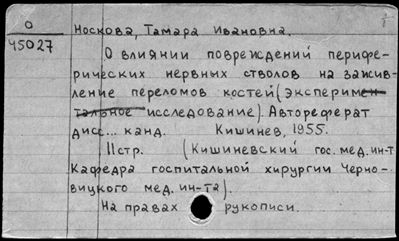 О
45027
Носкова, Тамара Ивановна.
О влиянии повреждений перифе-
рических нервных стволов на зажив-
ление переломов костей (эксперимен-
тальное исследование). Автореферат
дисс... канд. Кишинев, 1955.
11стр. (Кишиневский гос. мед. ин-т
Кафедра госпитальной хирургии Черно-
вицкого мед. ин-та).
На правах рукописи.